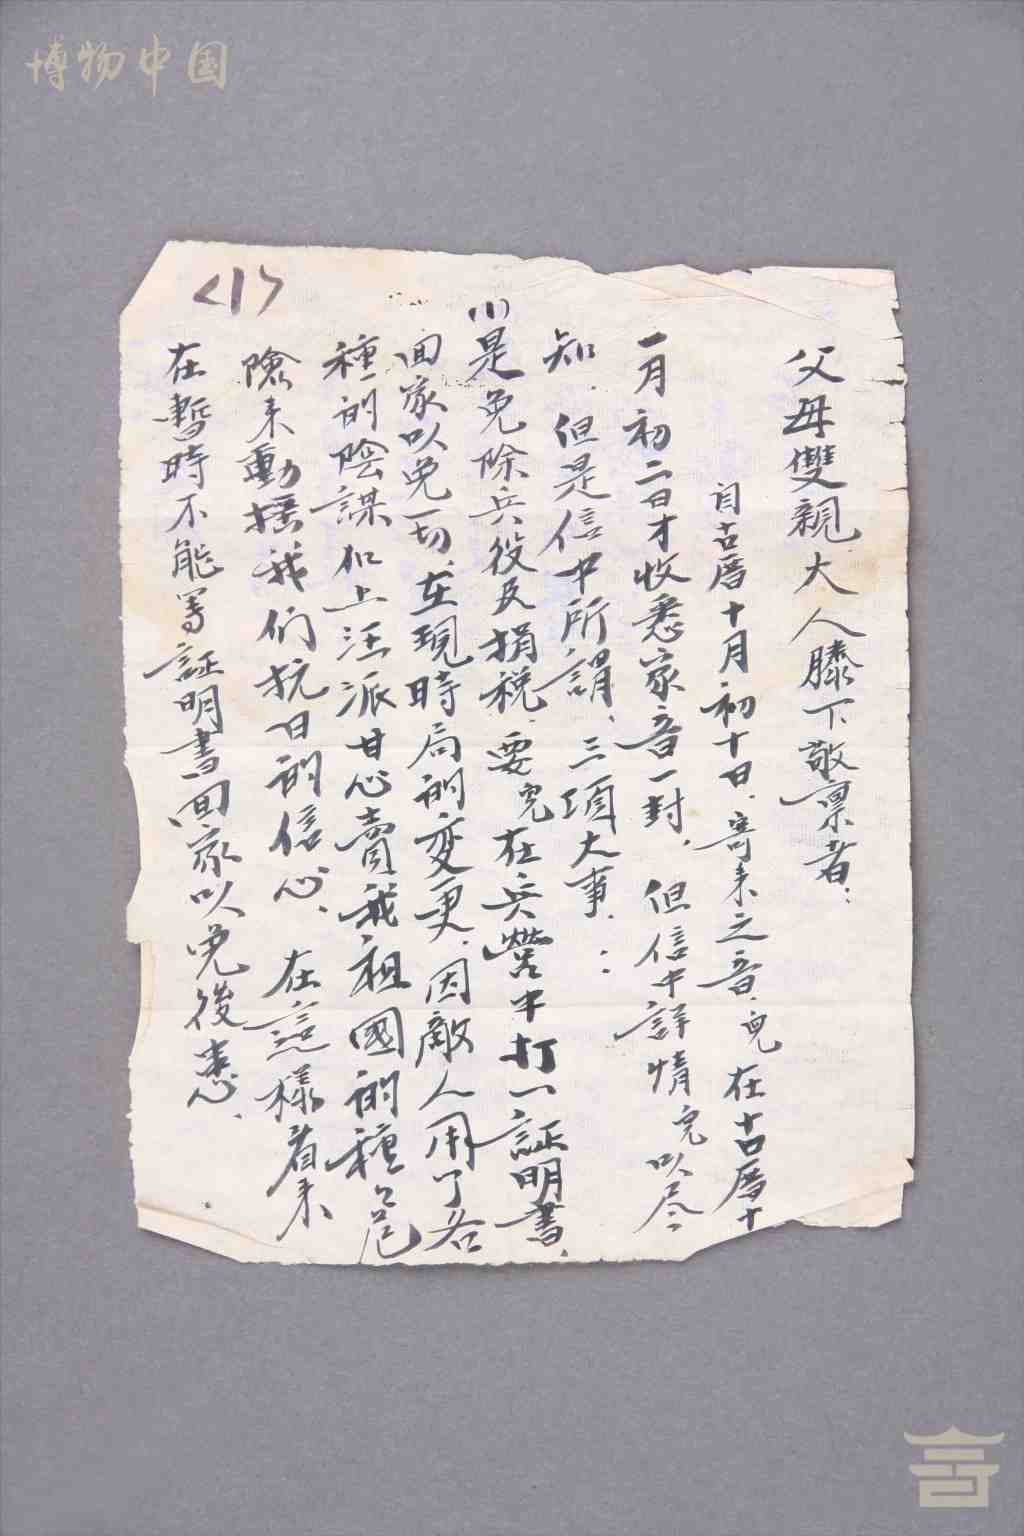 博物中国
<1>
父母雙親大人膝下敬禀者：
自古曆十月初十日、寄来之音、兒在古曆十
一月初二日才收悉家音一封、但信中詳情兒以尽
知、但是信中所謂、三項大事、：
(1)是免除兵役及捐税、要兒在兵營中打一証明書、
回家以免一切、在現時局的变更、因敵人用了各
種的陰謀加上汪派甘心賣我祖國的種危
險来動揺我们抗日的信心、在這樣着来
在暫時不能寄証明書回家以免後患、